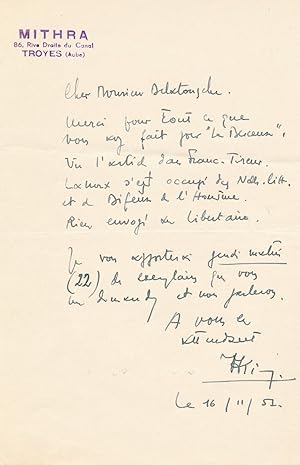 MITHRA
86, Rive Droite du Canal
TROYES (Aube)
Cher Monsieur
Merci pour tout ce que
vous avez fait pour "Le
Vu l'article dans Franc-Tireur.
s'est occupé des Nelles Litt.
et de Défense de l'Homme.
Rien envoyé au Libertaire.
Je vous apporterai jeudi matin
(22) des exemplaires que vous
me demandez et nous parlerons.
A vous
le 16/11/51.